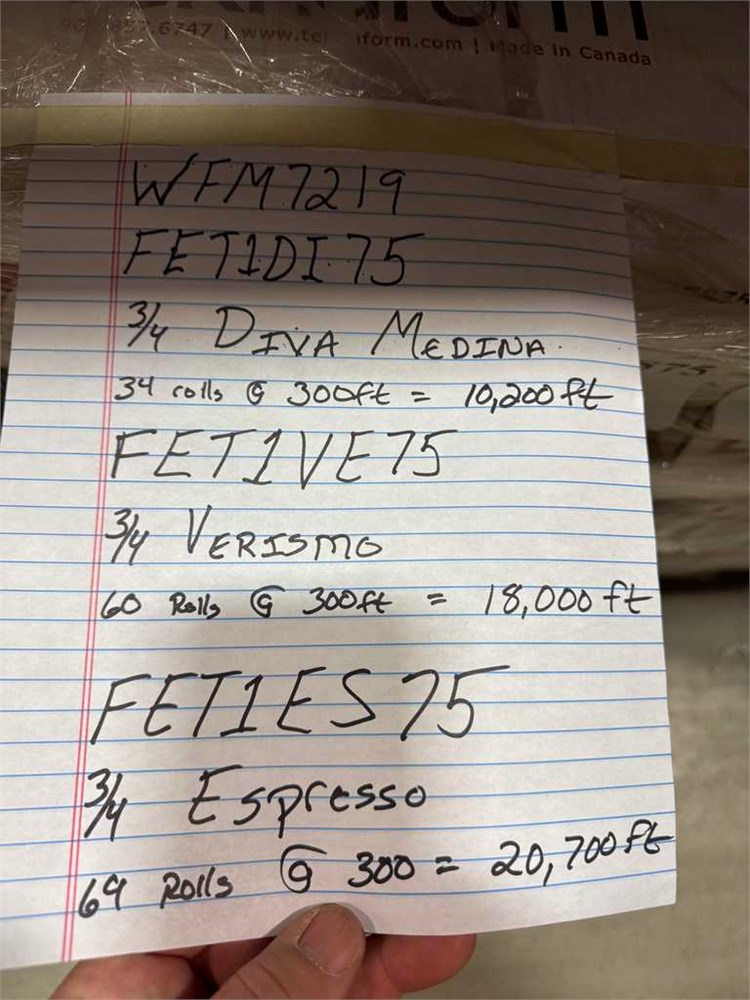 6747 | www.te iform.com | Made In Canada
WFM7219
FET1DI75
3/4 DIVA MEDINA.
34 rolls @ 300ft = 10,200ft
FET1VE75
3/4 VERISMO
60 Rolls @ 300ft = 18,000 ft
FET1ES75
3/4 Espresso
69 Rolls @ 300 = 20,700ft